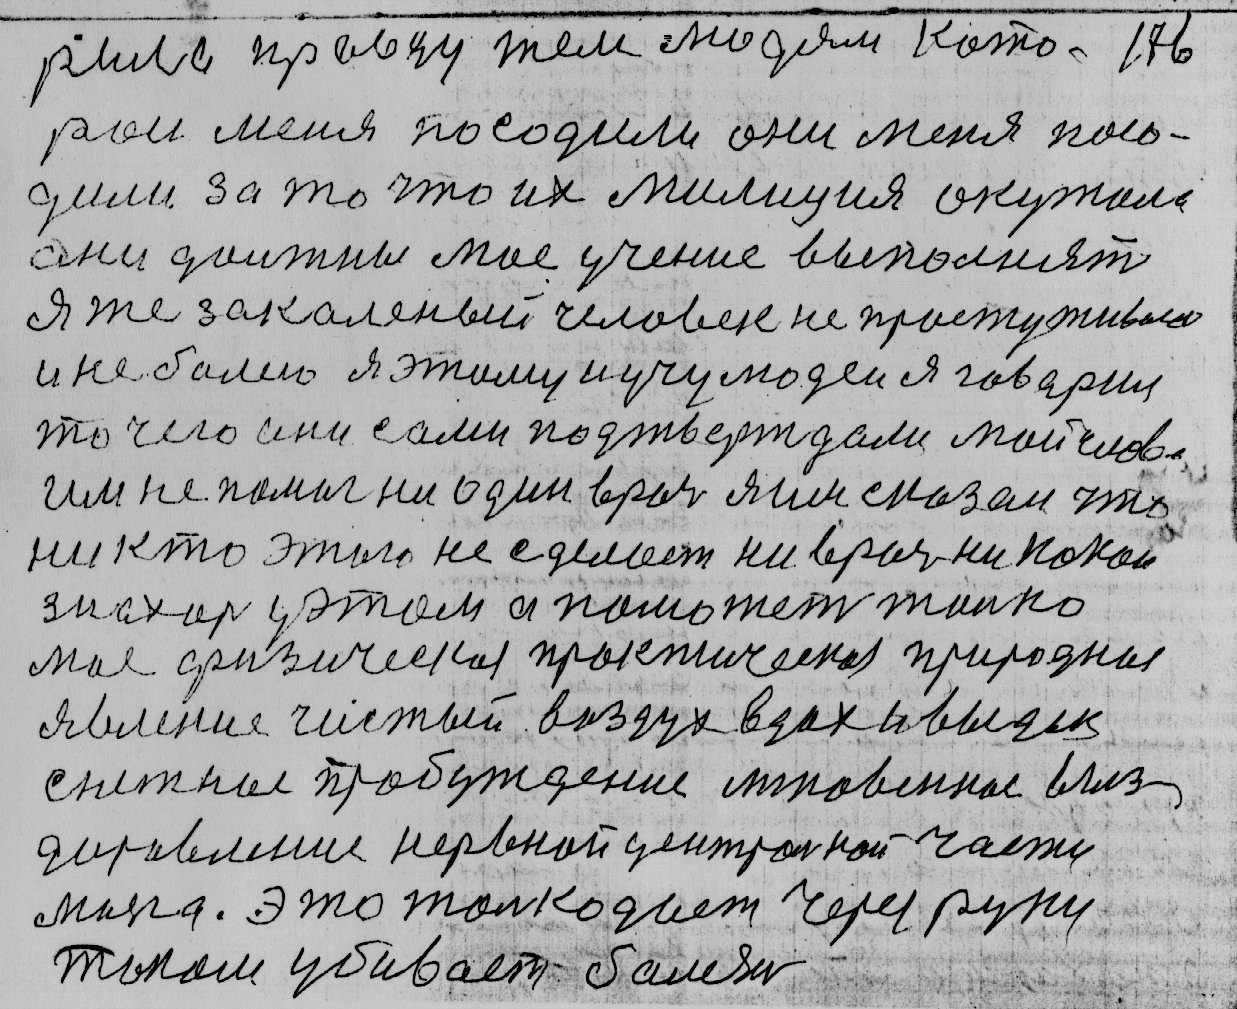 рила правду тем людям кото- 176
рои меня посодили они меня посо-
дили за то что их милиция окужала
они должны мое учение выполнят
я же закаленый человек не простуживаюс
и не болею я этому и учу людей я говарил
то чего они сами подтверждали мой слова
им не помог ни один врач я им сказал что
никто этого не сделает ни врач ни какой
знахор у этом а поможет толко
мое физическая практическая природная
явление чистый воздух вдох и выдох
снежное пробуждение мгновенное выз-
доровление нервной централной части
мозга. Это толко дает через руки
током убивает болезн